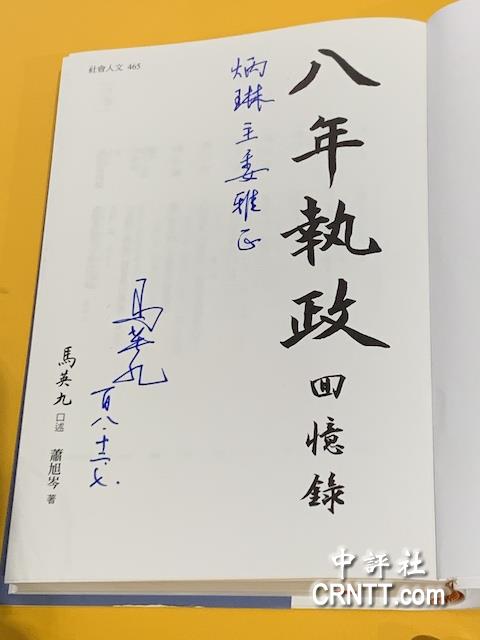 社會人文 465
八年執政
回憶錄
炳琳主委雅正
馬英九
百八.十二.七.
馬英九 口述 蕭旭岑 著
中評社
CRNTT.com